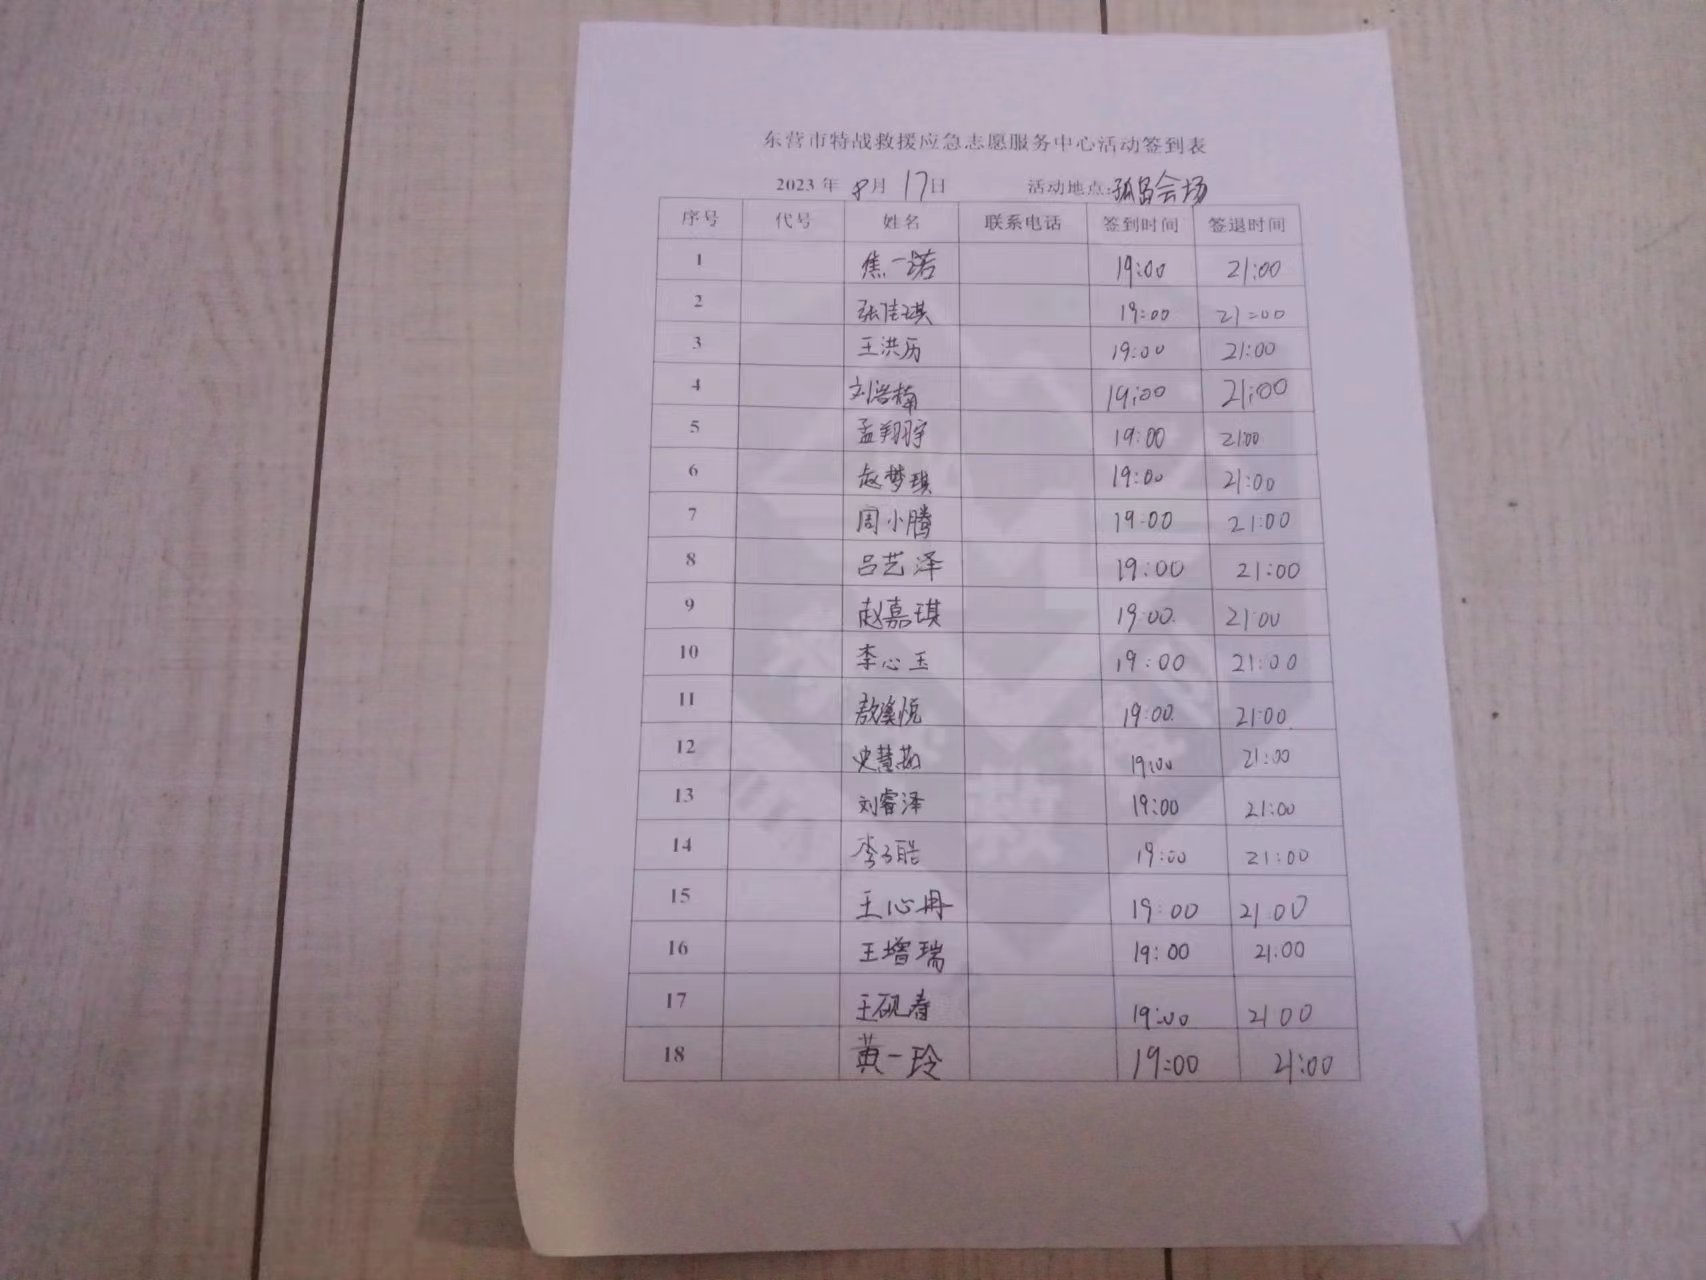 东营市特战救援应急志愿服务中心活动签到表
2023 年 8月 17日 活动地点:孤岛会场
序号 代号 姓名 联系电话 签到时间 签退时间
1 焦一诺 19:00 21:00
2 张佳琪 19:00 21:00
3 王洪历 19:00 21:00
4 刘浩楠 19:00 21:00
5 孟翔宇 19:00 21:00
6 赵梦琪 19:00 21:00
7 周小腾 19:00 21:00
8 吕艺泽 19:00 21:00
9 赵嘉琪 19:00 21:00
10 李心玉 19:00 21:00
11 敖溪悦 19:00 21:00
12 史慧茹 19:00 21:00
13 刘睿泽 19:00 21:00
14 李子皓 19:00 21:00
15 王心冉 19:00 21:00
16 王增瑞 19:00 21:00
17 王砚春 19:00 21:00
18 黄一玲 19:00 21:00